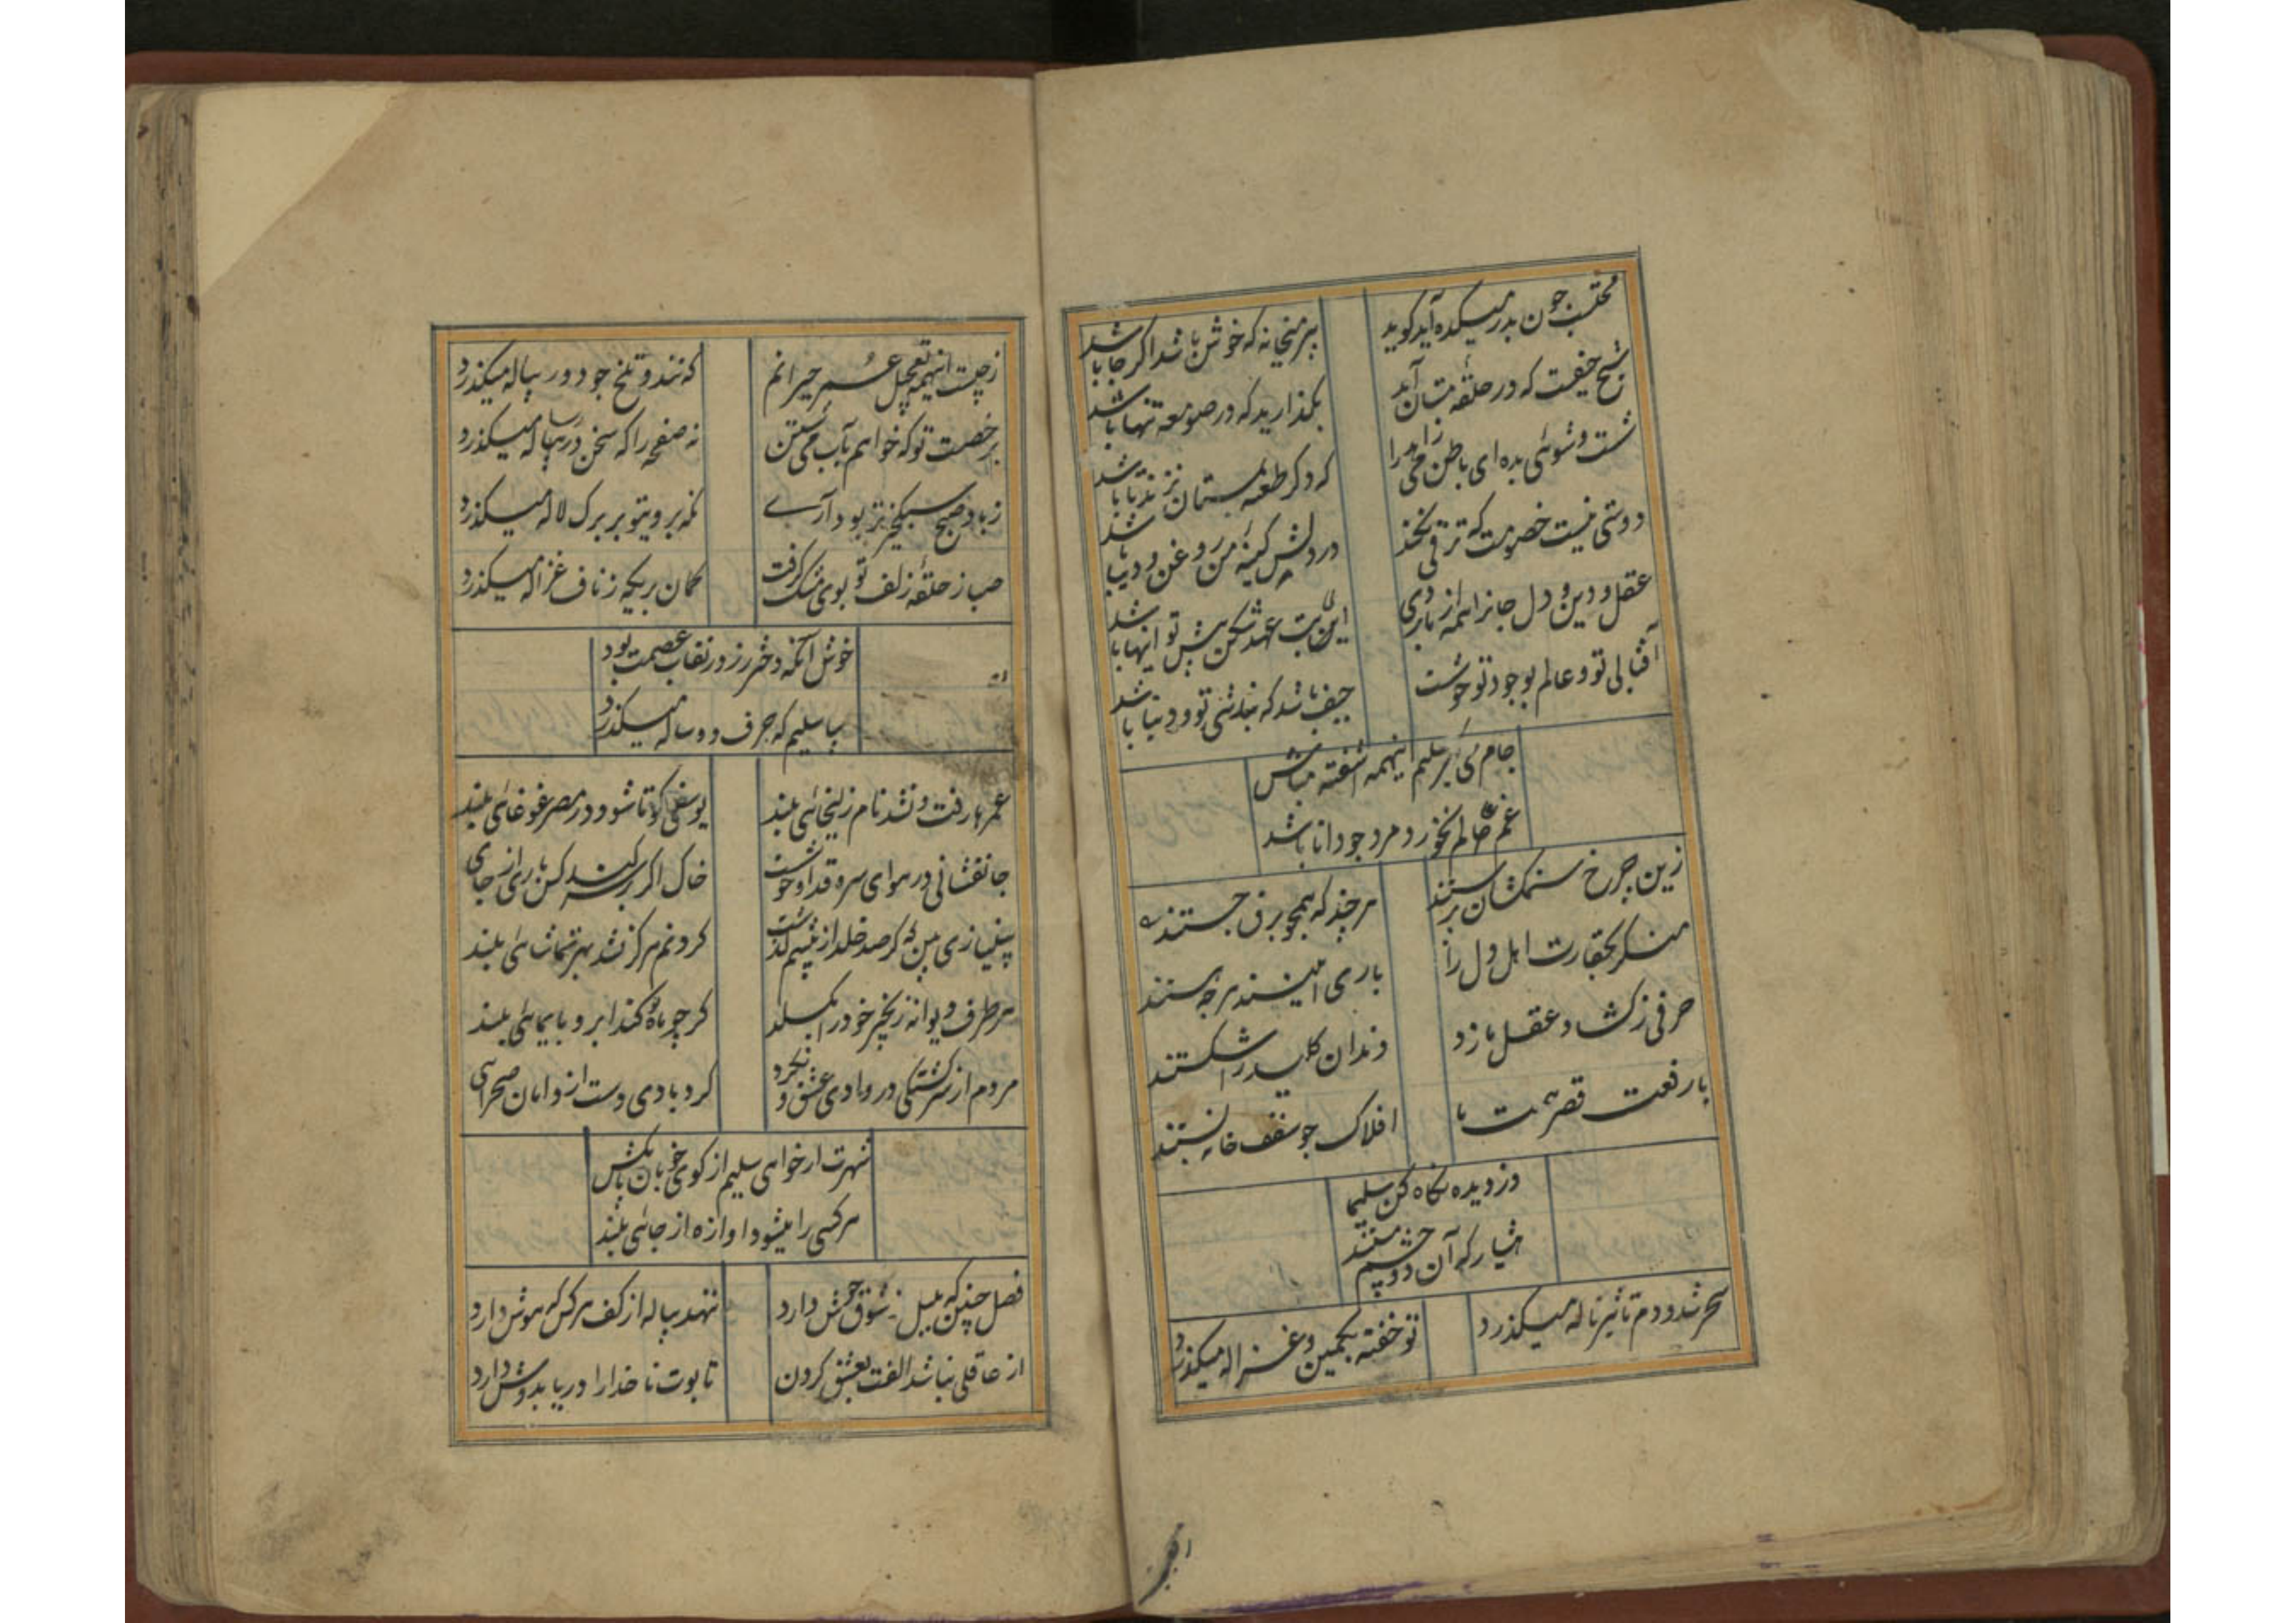 محتسب چون بدر میکده آید گوید
پیر میخانه که خوش باشد اگر جا باشد
شیخ حیفست که در حلقهٔ مستان آید
بگذارید که در صومعه تنها باشد
شست و شوئی بده ای باطن می زاهد را
که دگر طعنه بمستان نزند تا باشد
دوستی نیست خصومت که ترقی نکند
در دلش کینهٔ من روغن و دیبا باشد
عقل و دین و دل جانرا همه از ما بردی
این بت عهد شکن پیش تو اینها باشد
آفتابی تو و عالم بوجود تو خوشست
حیف باشد که نباشی تو و دنیا باشد
جام می گیر سلیم اینهمه آشفته مباش
غم عالم نخورد مرد چو دانا باشد
زین چرخ ستمکشان برستند
هر چند که همچو برق جستند
منگر بحقارت اهل دل را
باری اینند هر چه هستند
حرفی ز گشاد عقل ما زد
دندان کلید را شکستند
با رفعت قصر همت ما
افلاک چو سقف خانه پستند
دزدیده نگاه کن سلیما
هشیار که آن دو چشم مستند
سحر شد و دم تاثیر ناله میگذرد
تو خفته بکمین و غزاله میگذرد
ز چیست اینهمه تعجیل عمر حیرانم
که تند و تلخ چو دور پیاله میگذرد
برخصت تو که خواهم بآب می شستن
نه صفحه را که سخن در رساله میگذرد
ز باد صبح سبکخیزتر بود آرے
نگه بروی تو بر برگ لاله میگذرد
صبا ز حلقهٔ زلف تو بوی مشک گرفت
گمان بریکه ز ناف غزاله میگذرد
خوش آنکه دختر رز در نقاب عصمت بود
بیا سلیم که حرف دو ساله میگذرد
عمرها رفت و نشد نام زلیخائی بلند
یوسفی کو تا شود در مصر غوغائی بلند
جانفشانی در هوای سرو قد او خوشست
خاک اگر بر سر کنند کن باری از جای بلند
بینیازی بین که گر صد خلد از پیشم گذشت
گردنم هرگز نشد بهر تماشائی بلند
هر طرف دیوانه زنجیر خود را بگسلد
گر چو ماه نو کند ابرو بایمائی بلند
مردم از سرگشتگی در وادی عشق و نکرد
گردبادی دست از دامان صحرای بلند
شهرت ار خواهی سلیم از کوی خوبان پا مکش
هر کسی را میشود آوازه از جائی بلند
فصل چنین که بلبل ز شوق جوش دارد
ننهد پیاله از کف هر کس که هوش دارد
از عاقلی نباشد الفت بعشق کردن
تابوت ناخدا را دریا بدوش دارد